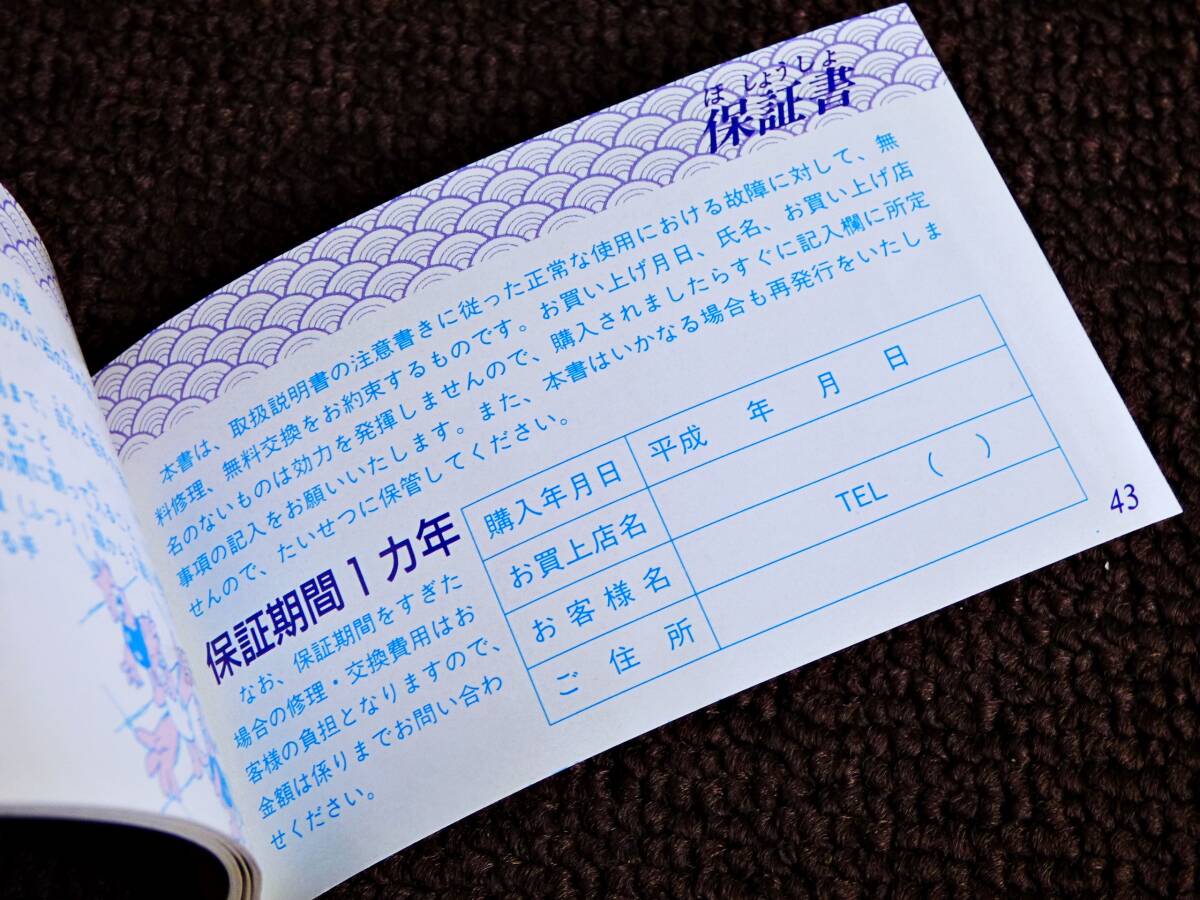 ほしょうしょ
保証書
本書は、取扱説明書の注意書きに従った正常な使用における故障に対して、無
料修理、無料交換をお約束するものです。お買い上げ月日、氏名、お買い上げ店
名のないものは効力を発揮しませんので、購入されましたらすぐに記入欄に所定
事項の記入をお願いいたします。また、本書はいかなる場合も再発行をいたしま
せんので、たいせつに保管してください。
保証期間1カ年
なお、保証期間をすぎた
場合の修理・交換費用はお
客様の負担となりますので、
金額は係りまでお問い合わ
せください。
購入年月日 平成 年 月 日
お買上店名
お客様名 TEL ( )
ご住所
43